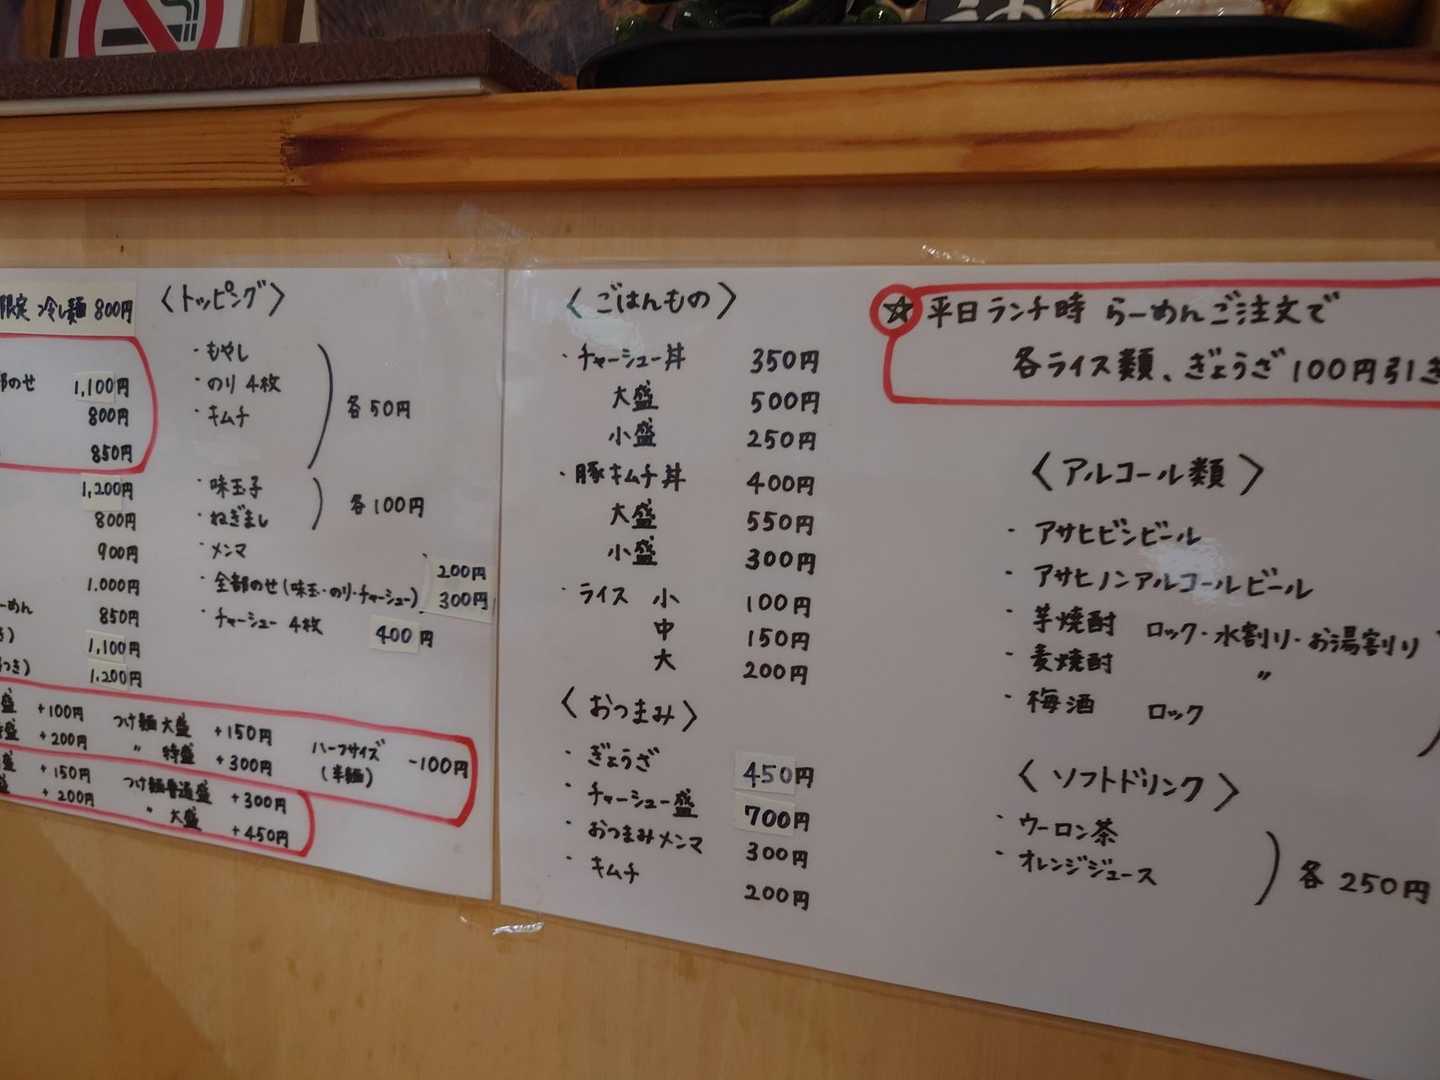 限定 冷し麺 800円
部のせ 1,100円
800円
850円
1,200円
800円
900円
1.000円
らーめん 850円
1,100円
つき) 1.200円
盛 +100円 つけ麺 大盛 +150円
特盛 +200円 〃 特盛 +300円
ハーフサイズ
(半麺) -100円
盛 +150円 つけ麺普通盛 +300円
盛 +200円 〃 大盛 +450円
〈トッピング〉
・もやし
・のり 4枚
・キムチ
各50円
・味玉子
・ねぎまし
各100円
・メンマ 200円
・全部のせ(味玉・のり・チャーシュー) 300円
・チャーシュー 4枚 400円
〈ごはんもの〉
・チャーシュー丼 350円
大盛 500円
小盛 250円
・豚キムチ丼 400円
大盛 550円
小盛 300円
・ライス 小 100円
中 150円
大 200円
〈おつまみ〉
・ぎょうざ 450円
・チャーシュー盛 700円
・おつまみメンマ 300円
・キムチ 200円
☆平日ランチ時 らーめんご注文で
各ライス類、ぎょうざ100円引き
〈アルコール類〉
・アサヒビンビール
・アサヒノンアルコールビール
・芋焼酎 ロック・水割り・お湯割り
・麦焼酎 〃
・梅酒 ロック
〈ソフトドリンク〉
・ウーロン茶
・オレンジジュース
各250円